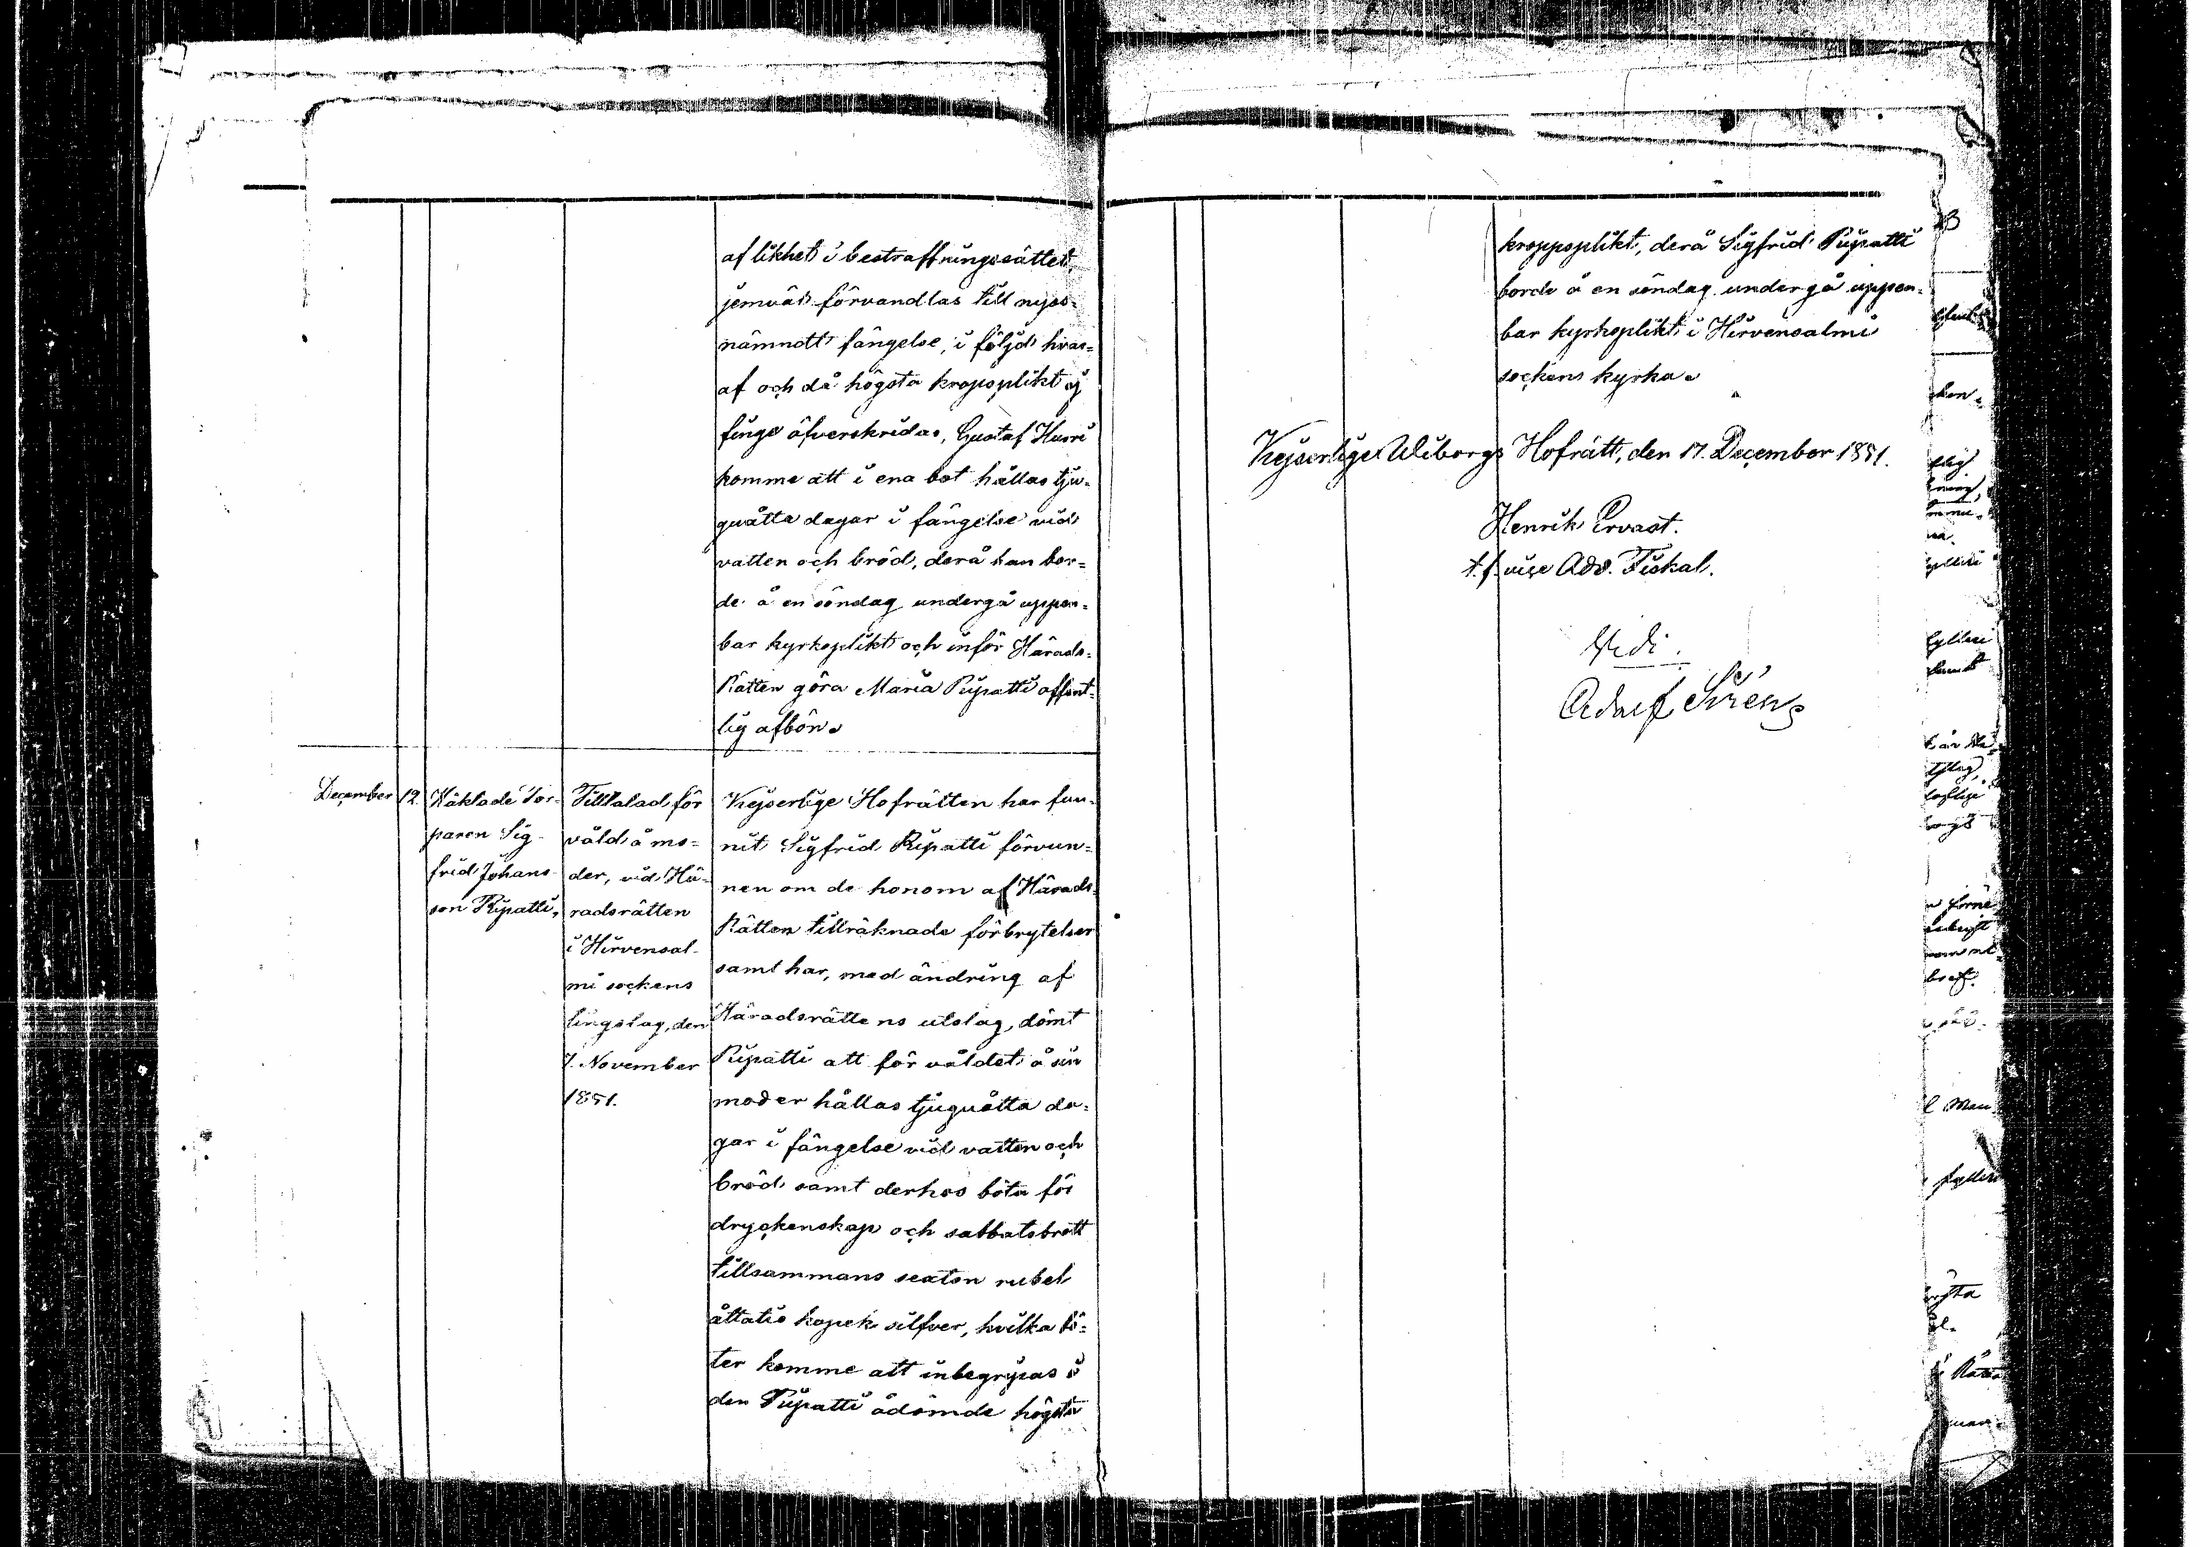 af likhet i bestraffningssättet,
jemväl förvandlas till nyss-
nämnott fängelse, i följd hvar-
af och då högsta kroppsplikt ej
finge öfverskridas, Gustaf Husri
komme att i ena bot hållas tju-
guåtta dagar i fängelse vid
vatten och bröd, derå han bor-
de å en söndag undergå uppen-
bar kyrkoplikt och inför Härads-
Rätten göra Maria Ripatti offent-
lig afbön.
December 12. Häktade Tor-
paren Sig-
frid Johans-
son Ripatti,
Tilltalad för
våld å mo-
der, vid Hä-
radsrätten
i Hirvensal-
mi sockens
tingslag, den
7. November
1851.
Kejserlige Hofrätten har fun-
nit Sigfrid Ripatti förvun-
nen om de honom af Härads-
Rätten tillräknade förbrytelser
samt har, med ändring af
Häradsrättens utslag, dömt
Ripatti att för våldet å sin
moder hållas tjuguåtta da-
gar i fängelse vid vatten och
bröd samt derhos böta för
dryckenskap och sabbatsbrott
tillsammans sexton rubel
åttatio kopek silfver, hvilka bö-
ter komme att inbegripas i
den Ripatti ådömde högsta
kroppsplikt, derå Sigfrid Ripatti
borde å en söndag undergå uppen-
bar kyrkoplikt i Hirvensalmi
sockens kyrka.
Kejserlige Wiborgs Hofrätt, den 17. December 1851.
Henrik Ervast.
t.f. vice Adv. Fiskal.
Vidi.
Adolf Sirén